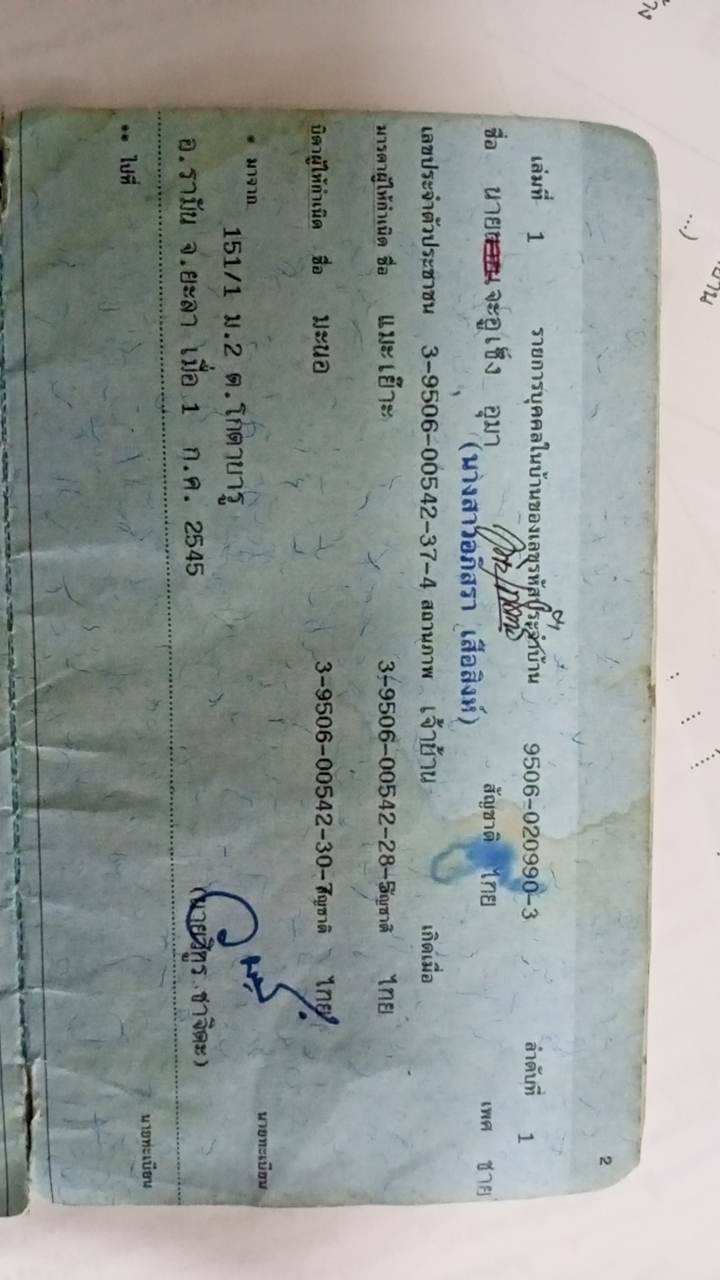 2
เล่มที่ 1 รายการบุคคลในบ้านของเลขรหัสประจำบ้าน 9506-020990-3 ลำดับที่ 1
ชื่อ นาย จะอูเซ็ง อุมา สัญชาติ ไทย เพศ ชาย
(นางสาวอภิสรา เสือสิงห์)
เลขประจำตัวประชาชน 3-9506-00542-37-4 สถานภาพ เจ้าบ้าน เกิดเมื่อ
มารดาผู้ให้กำเนิด ชื่อ แมะเย๊าะ 3-9506-00542-28-5 สัญชาติ ไทย
บิดาผู้ให้กำเนิด ชื่อ มะนอ 3-9506-00542-30-7 สัญชาติ ไทย
* มาจาก 151/1 ม.2 ต.โกตาบารู นายทะเบียน
อ.รามัน จ.ยะลา เมื่อ 1 ก.ค. 2545
** ไปที่ นายทะเบียน